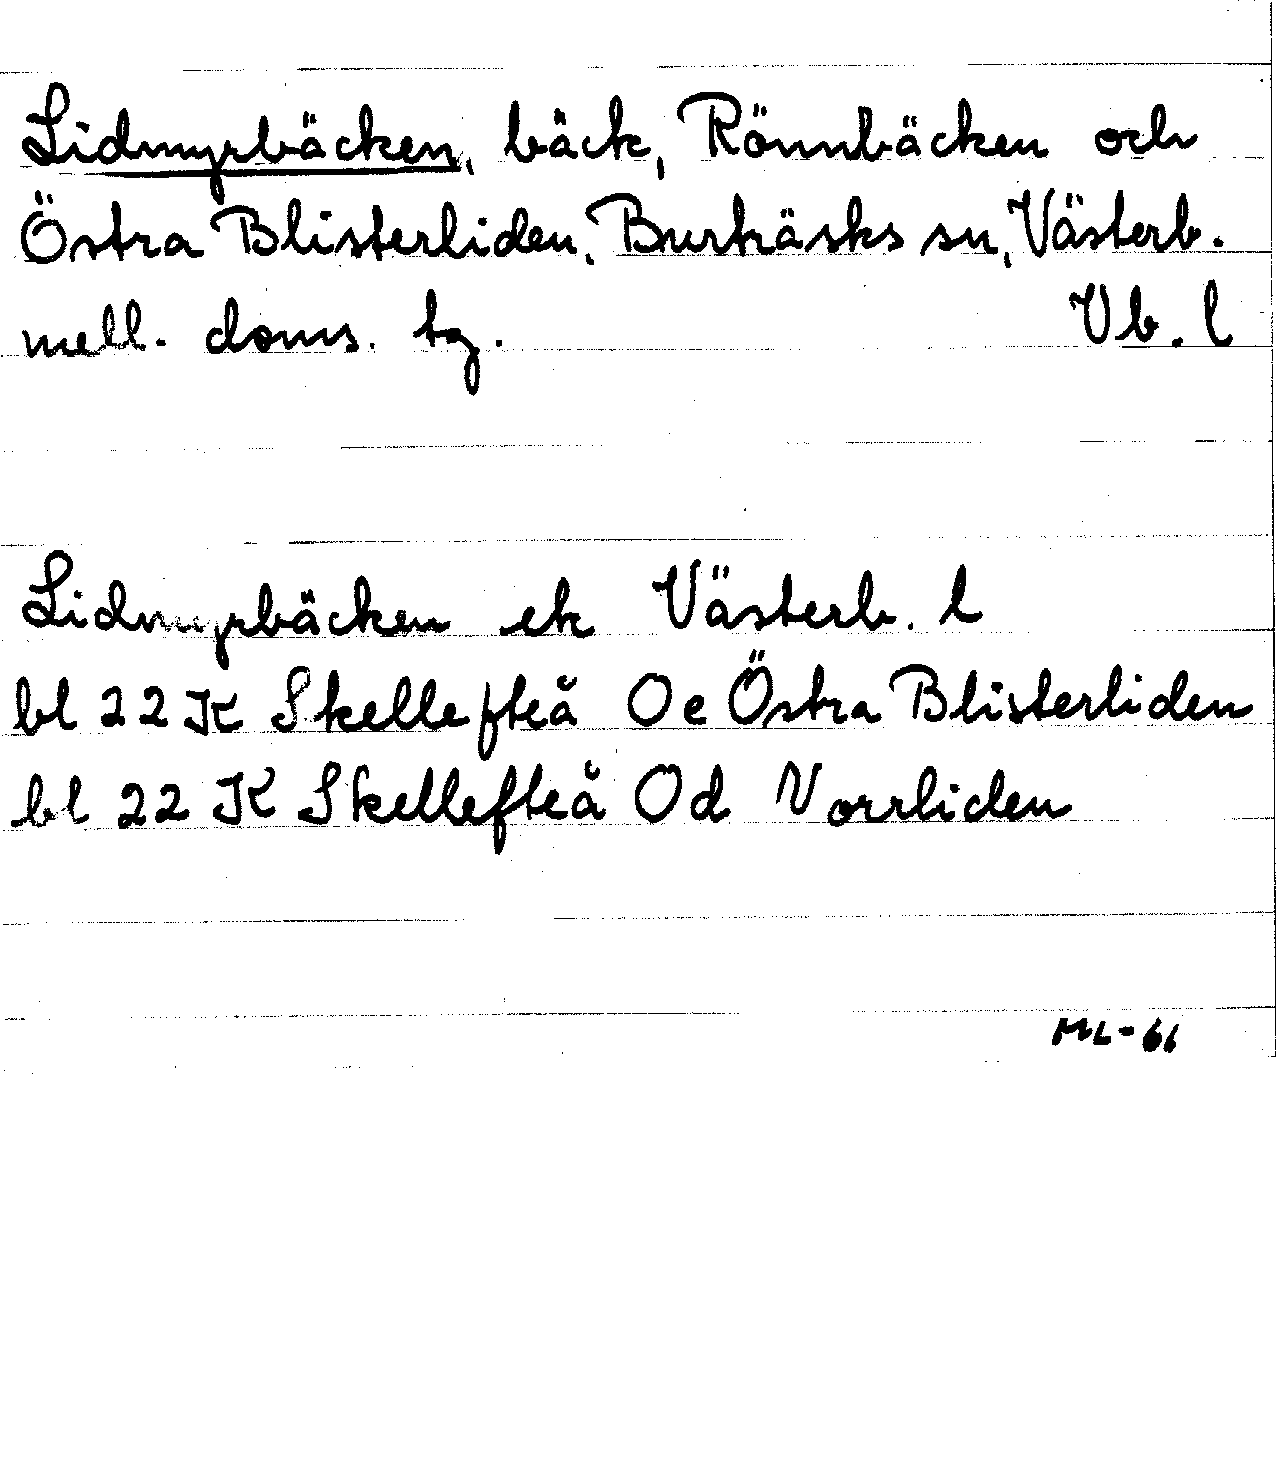 Lidmyrbäcken, bäck, Rönnbäcken och
Östra Blisterliden, Burträsks sn, Västerb.
mell. doms. tg. Vb. l
Lidmyrbäcken ek Västerb. l
bl 22 K Skellefteå Oe Östra Blisterliden
bl 22 K Skellefteå Od Vorrliden
ML-61